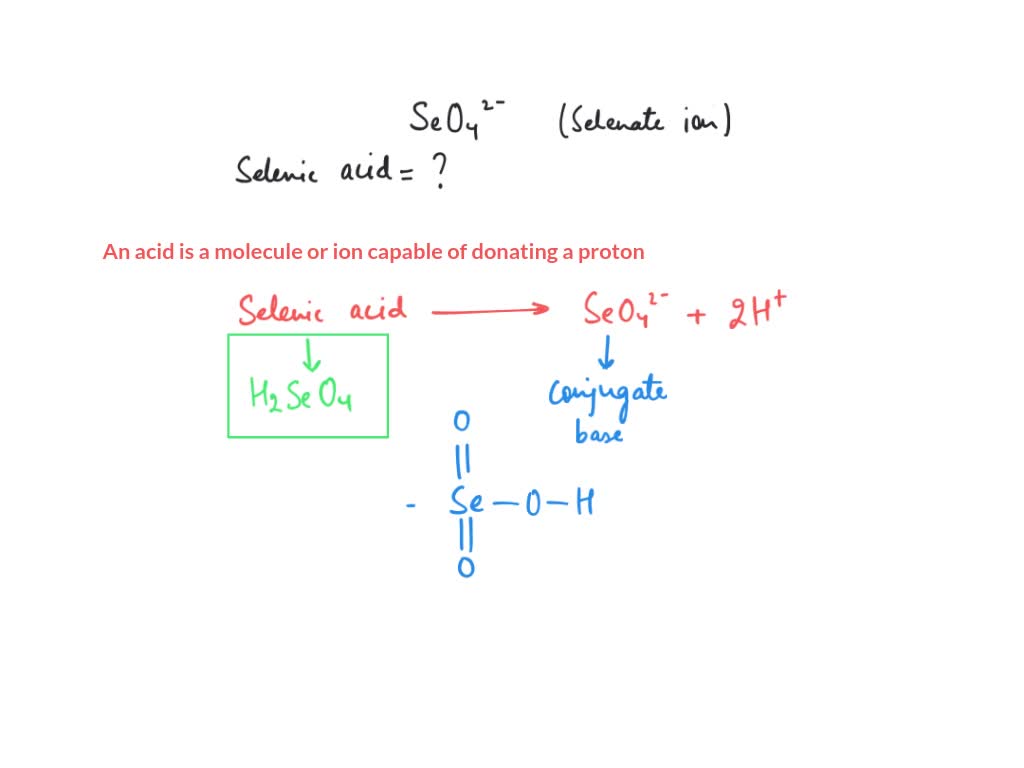 SeO₄²⁻ (Selenate ion)
Selenic acid = ?
An acid is a molecule or ion capable of donating a proton
Selenic acid ⟶ SeO₄²⁻ + 2H⁺
↓ ↓
H₂SeO₄ Conjugate
base
O
||
- Se – O – H
||
O